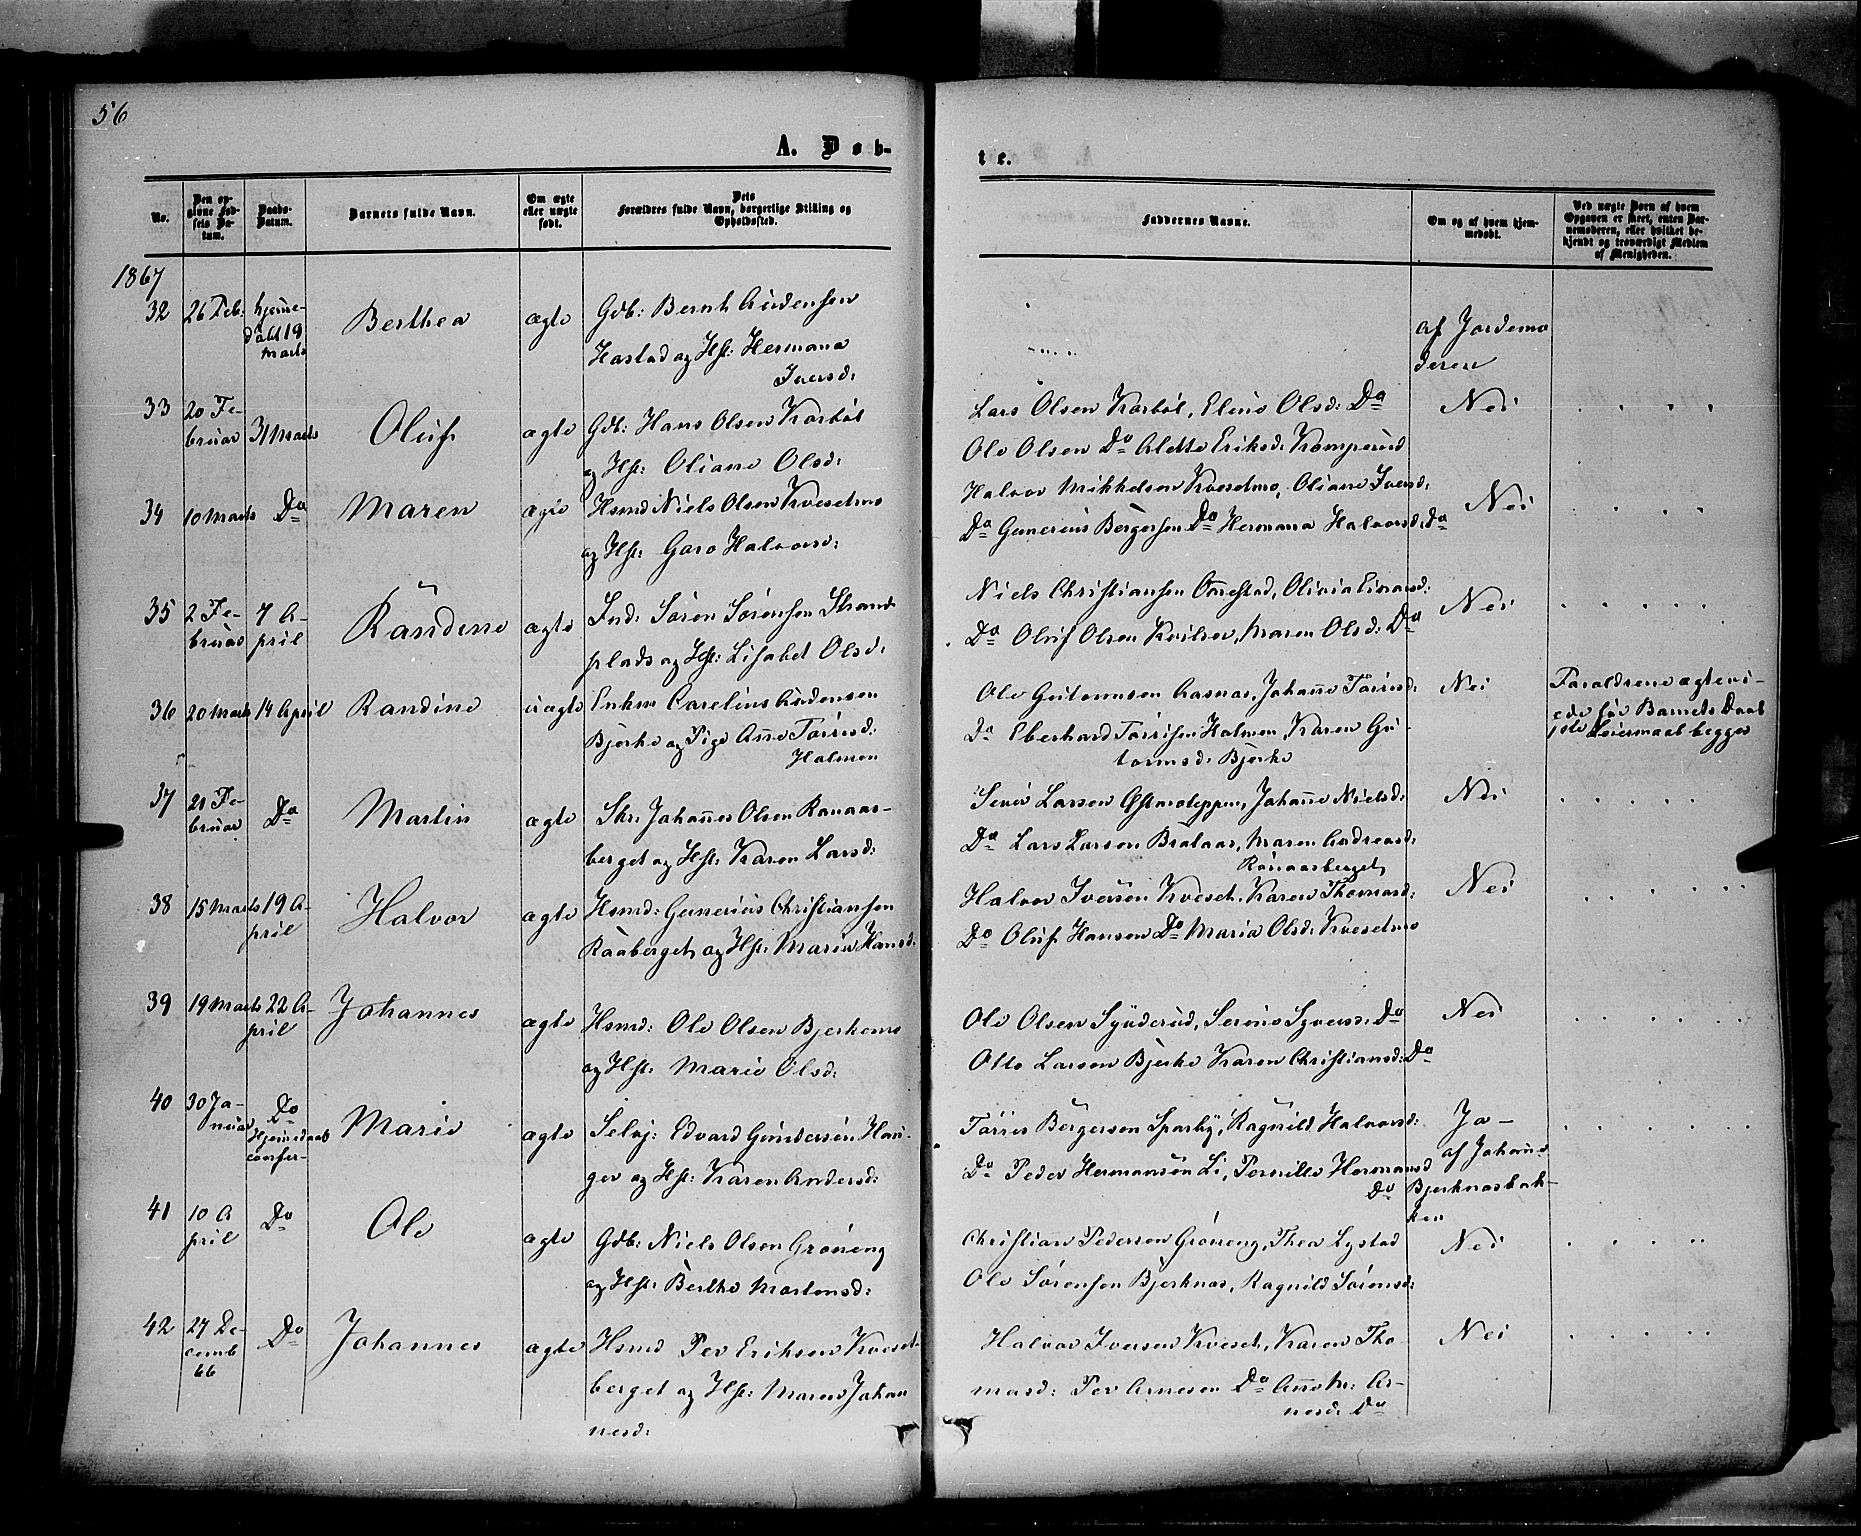 56
A. Døb-
te.
No.
Den opgivne Fødsels Datum.
Daabs-Datum.
Barnets fulde Navn.
Om ægte eller uægte født.
Dets Forældres fulde Navn, borgerlige Stilling og Opholdssted.
Faddernes Navne.
Om og af hvem hjemmedøbt.
Ved uægte Børn af hvem Opgaven er skeet, enten Barnemoderen, eller hvilket bekjendt og troværdigt Medlem af Menigheden.
1867
32 26 Feb: hjemmedøbt 19 Marts Berthea ægte Gdb: Bernt Audensen
Hastad og Hst: Hermana
Iversd:
af Jordemo
deren
33 20 Februar 31 Marts Oluf ægte Gdb: Hans Olsen Karbøl
og Hst: Oliane Olsd:
Lars Olsen Karbøl, Eline Olsd: Do Nei
Ole Olsen Do Alette Eriksd: Kamperud
34 10 Marts Do Maren ægte Hsmd Niels Olsen Kvesetmo
og Hst: Goro Halvorsd:
Halvor Mikkelsen Kvesetmo, Oliane Iversd: Nei
Do Gunerius Bergersen Do Hermana Halvorsd: Do
35 2 Februar 7 April Randine ægte Ind: Søren Sørensen Strand
plads og Hst: Lisabet Olsd:
Niels Christiansen Onestad, Olivia Einarsd: Nei
Do Oluf Olsen Kvilver, Maren Olsd: Do
36 20 Marts 14 April Randine uægte Enkm Carelius Audensen
Bjerke og Pige Anne Torrisd:
Holmen
Ole Gutormsen Aasnæs, Johanne Torrisd: Nei
Do Eberhard Torrisen Holmen, Karen Gu-
tormsd: Bjerke
Forældrene ægtevi-
ede før Barnets Daab
1ste Leiermaal begges
37 21 Februar Do Martin ægte Skr: Johannes Olsen Ranaas-
berget og Hst: Karen Larsd:
Simen Larsen Østaasteppen, Johanne Nielsd: Nei
Do Lars Larsen Bralaas, Maren Andreasd:
Ranaasberget
38 15 Marts 19 April Halvor ægte Hsmd: Gunerius Christiansen
Raaberget og Hst: Maria Hansd:
Halvor Iversen Kveset, Karen Thomasd: Nei
Do Oluf Hansen Do Maria Olsd: Kvesetmo
39 19 Marts 22 April Johannes ægte Hsmd: Ole Olsen Bjerkemo
og Hst: Marie Olsd:
Ole Olsen Synderud, Serine Syversd: Do Nei
Otto Larsen Bjerke Karen Christiansd: Do
40 30 Januar Do Hjemmedaab confer- Marie ægte Selvej: Edvard Gundersen Hau-
ger og Hst: Karen Andersd:
Torris Bergersen Sparby, Ragnild Halvorsd: Ja -
Do Peder Hermansen Li, Pernille Hermansd
Do
af Johanne
Bjerknesbak-
ken
41 10 April Do Ole ægte Gdb: Niels Olsen Grøneng
og Hst: Berthe Mortensd:
Christian Pedersen Grøneng, Thea Lystad Nei
Ole Sørensen Bjerknes, Ragnild Sørensd:
42 27 Decemb 66 Do Johannes ægte Hsmd Per Eriksen Kveset-
berget og Hst: Maren Johan
nesd:
Halvor Iversen Kveset, Karen Tho Nei
masd: Per Arnesen Do Anne M: Ar-
nesd: Do